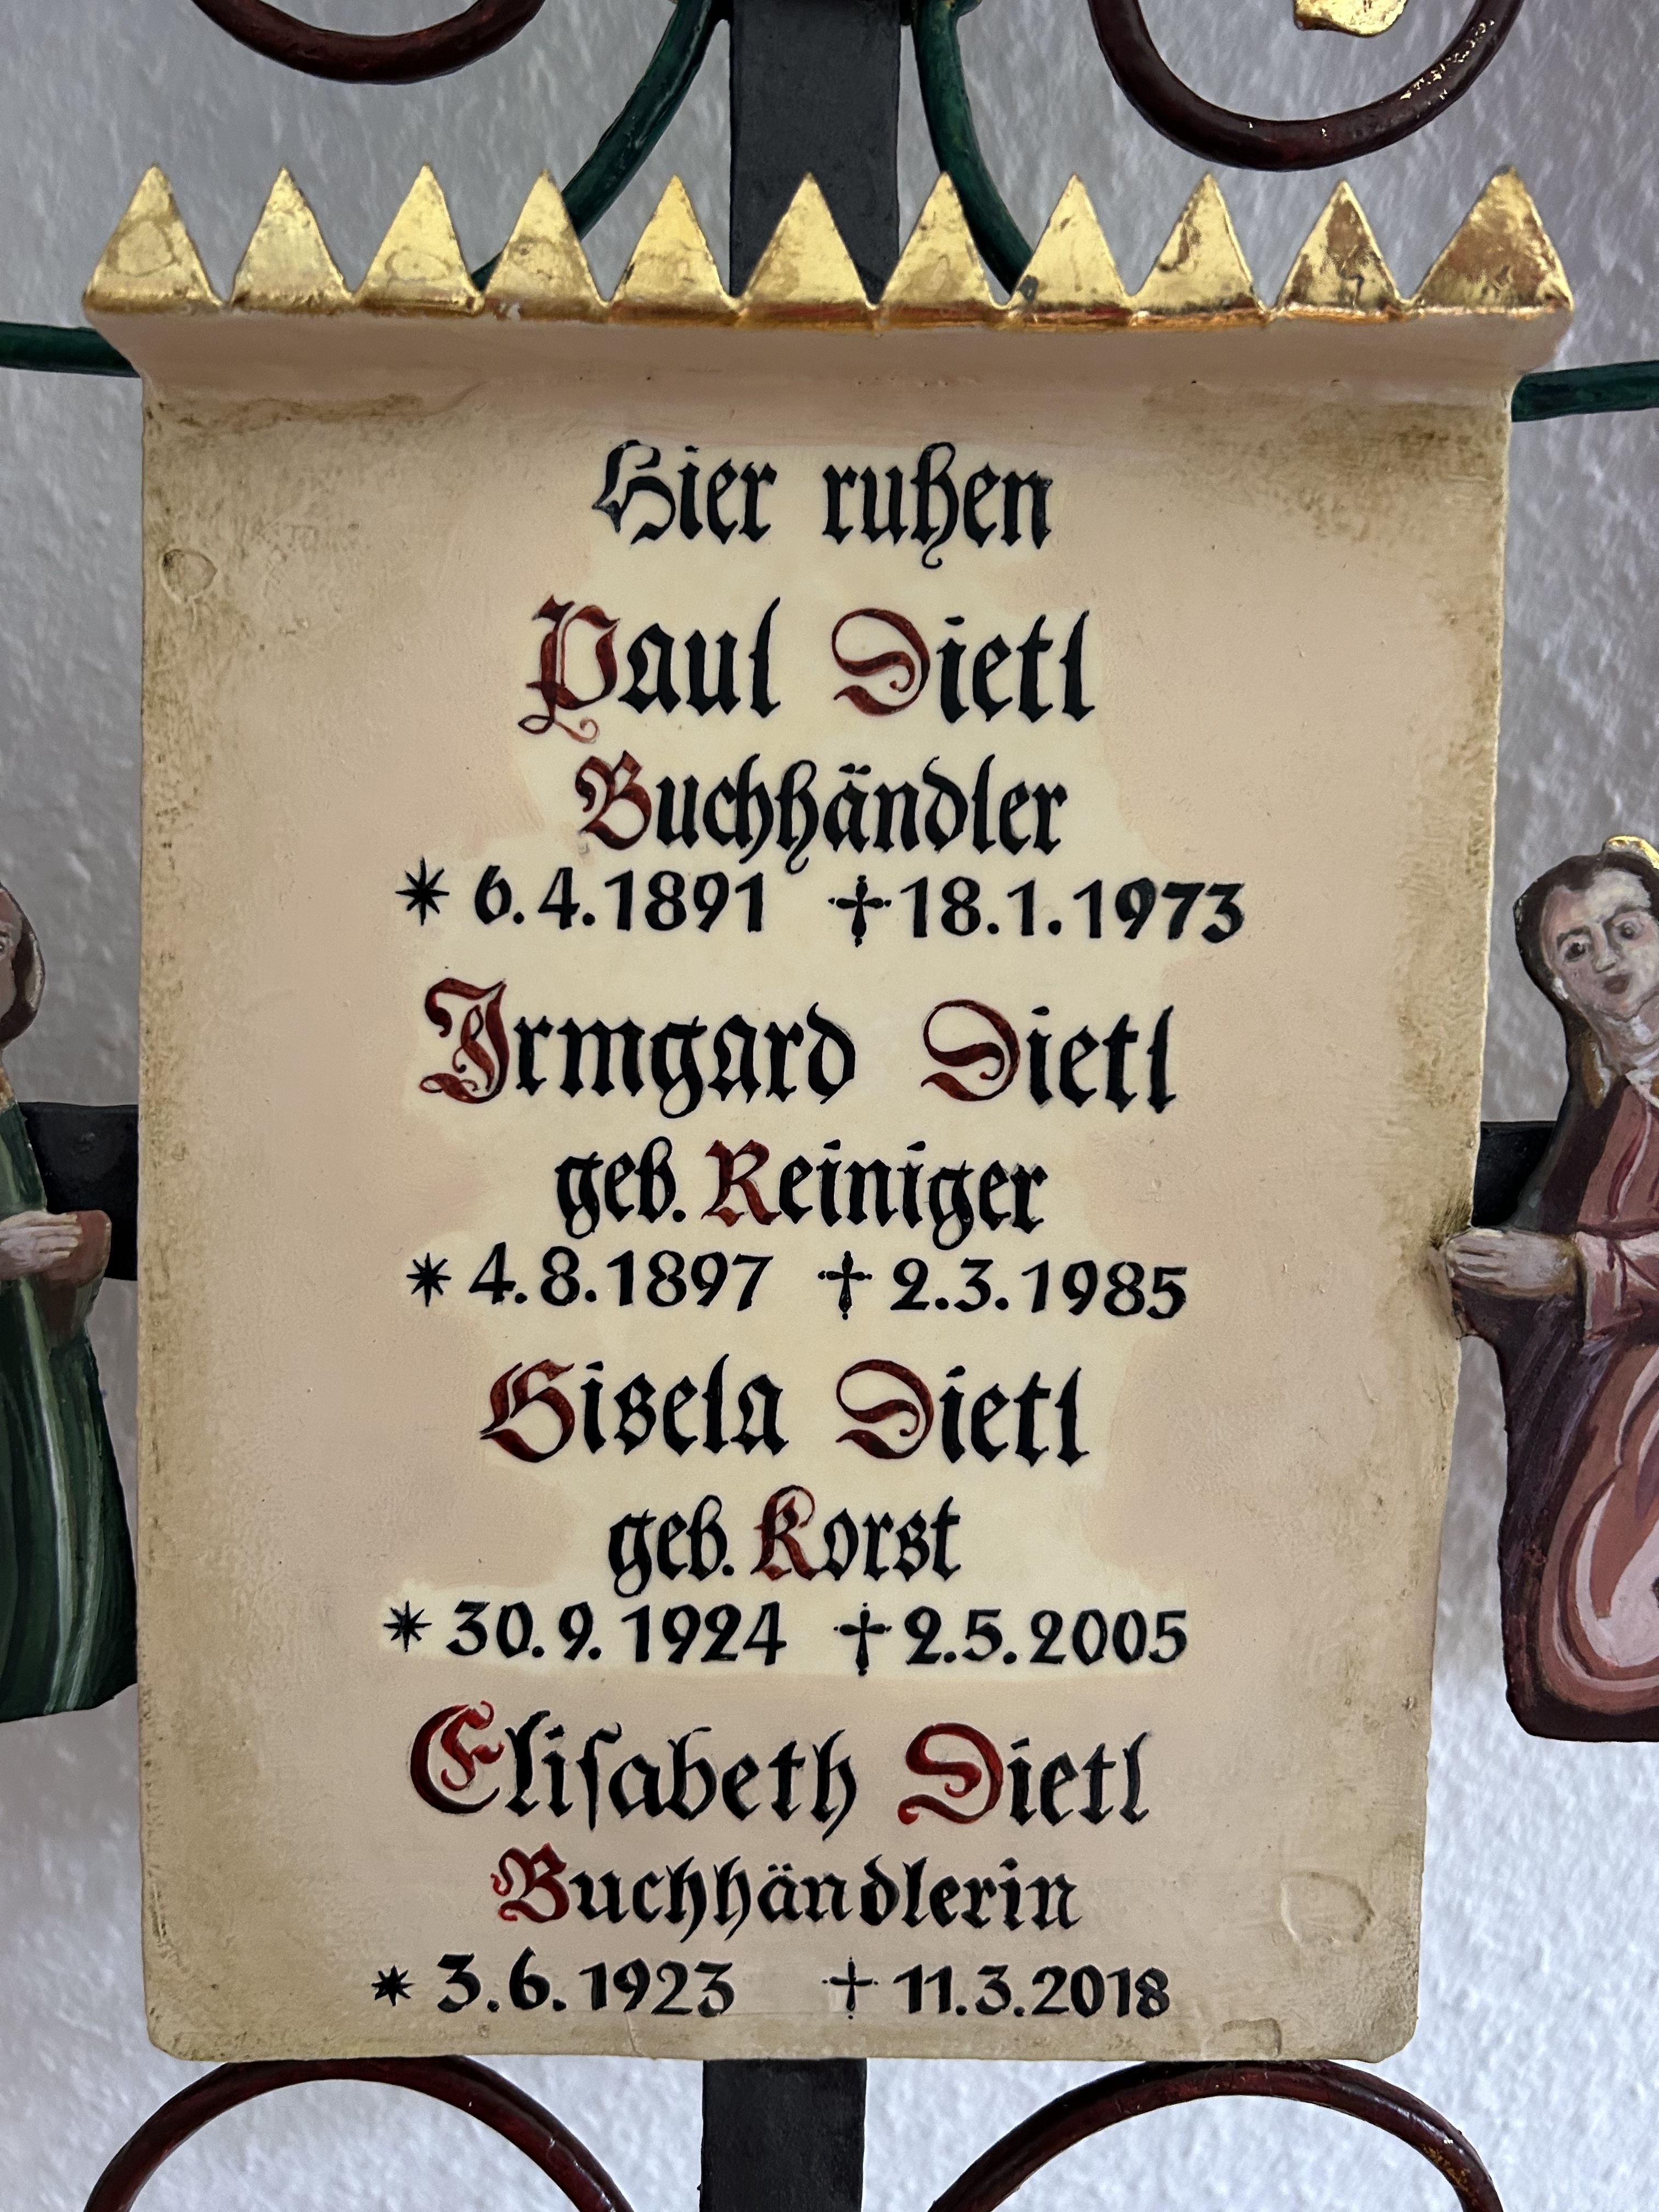 Hier ruhen
Paul Dietl
Buchhändler
* 6.4.1891 †18.1.1973
Irmgard Dietl
geb. Reiniger
* 4.8.1897 † 2.3.1985
Gisela Dietl
geb. Korst
* 30.9.1924 † 2.5.2005
Eliſabeth Dietl
Buchhändlerin
* 3.6.1923 † 11.3.2018